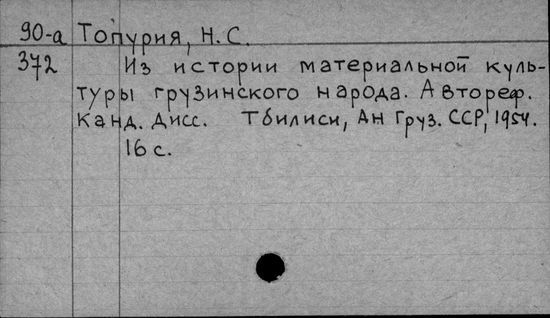 90-а Топурия, Н.С.
372 Из истории материальной куль-
туры грузинского народа. Автореф.
канд. дисс. Тбилиси, Ан Груз. ССР, 1954.
16 с.